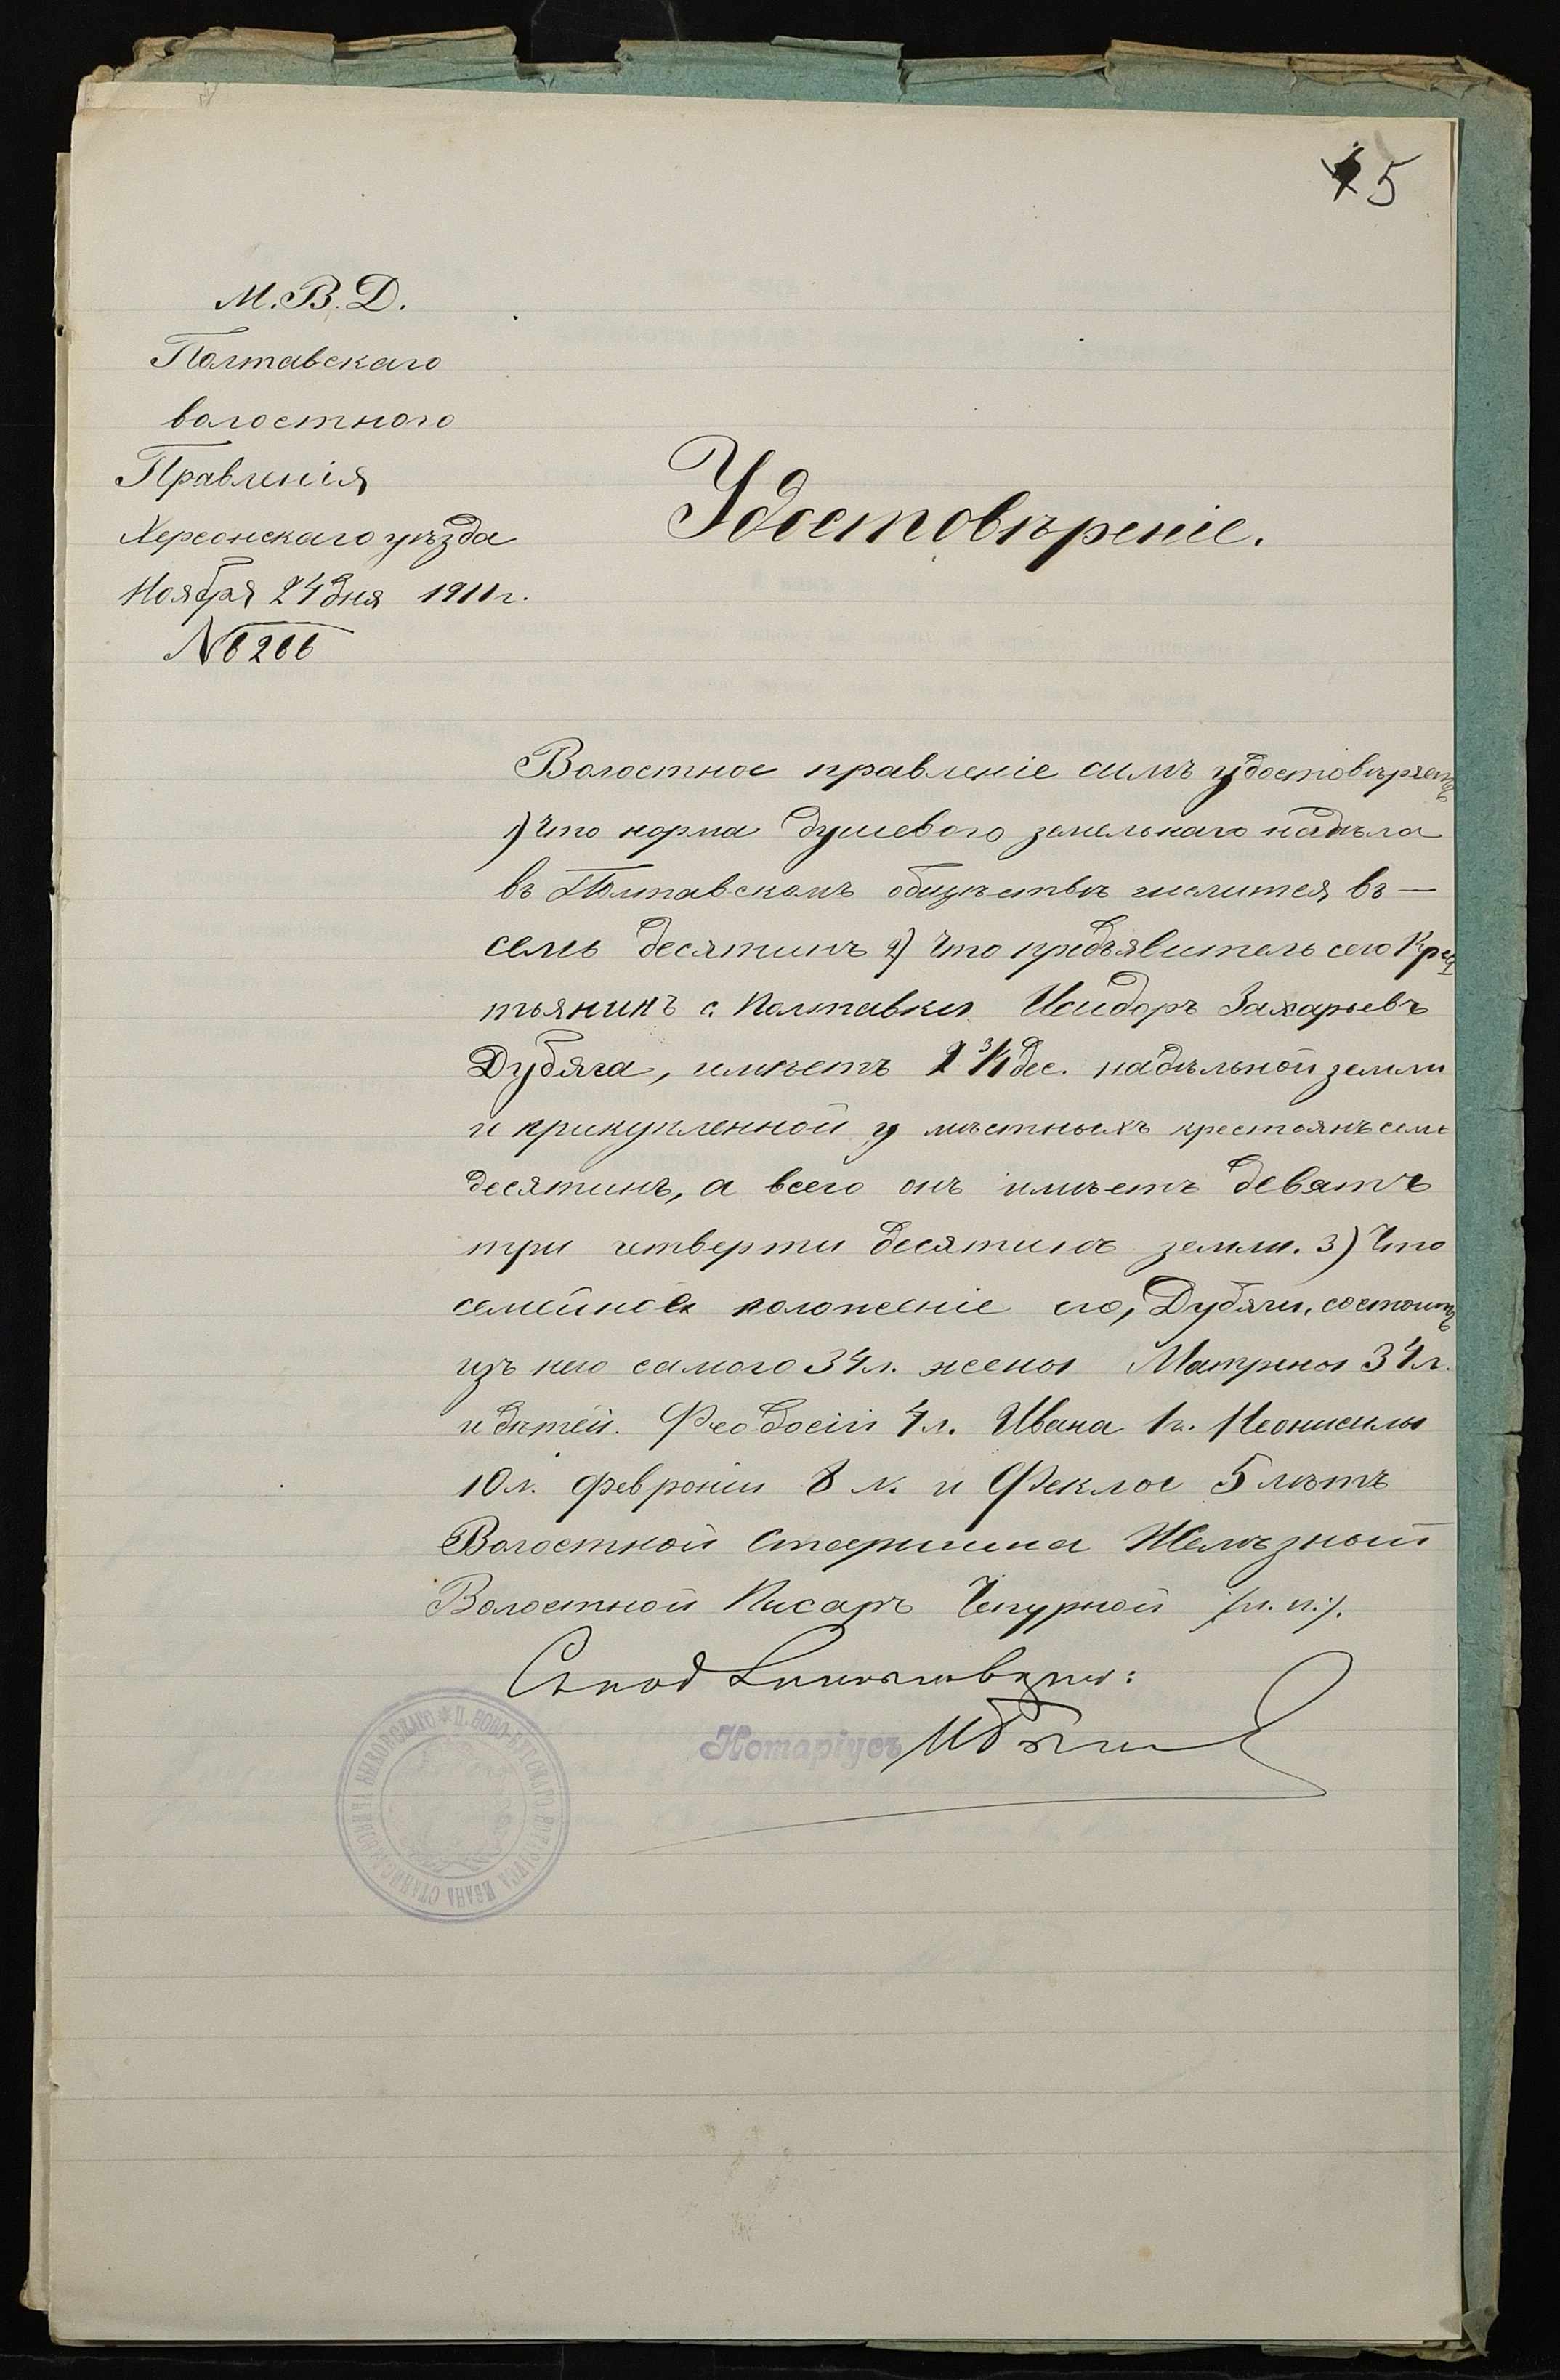 5
М. В. Д.
Полтавскаго
волостного
Правленія
Херсонскаго уѣзда
Ноября 24 дня 1911 г.
№ 6266
Удостовѣреніе.
Волостное правленіе симъ удостовѣряетъ
1) Что норма душевого земельнаго надѣла
въ Полтавскомъ обществѣ числится въ —
семь десятинъ 2) Что предъявитель сего Крес
тьянинъ с. Полтавки Исидоръ Захарьевъ
Дубяга, имѣетъ 2 3/4 дес. надѣльной земли
и прикупленной у мѣстныхъ крестьянъ семь
десятинъ, а всего онъ имѣетъ девять
три четверти десятинъ земли. 3) Что
семейное положеніе его, Дубяги, состоитъ
изъ него самого 34 л. жены Матрены 34 л.
и дѣтей. Феодосіи 4 л. Ивана 1 г. Неонисилы
10 л. Февроніи 8 л. и Феклы 5 лѣтъ
Волостной Старшина Желѣзный
Волостной Писарь Чепурной /м. п./.
Съ под
Нотаріусъ
* П. НОВО-БУГСКАГО НОТАРІУСА ИВАНА СТАНИСЛАВОВИЧА